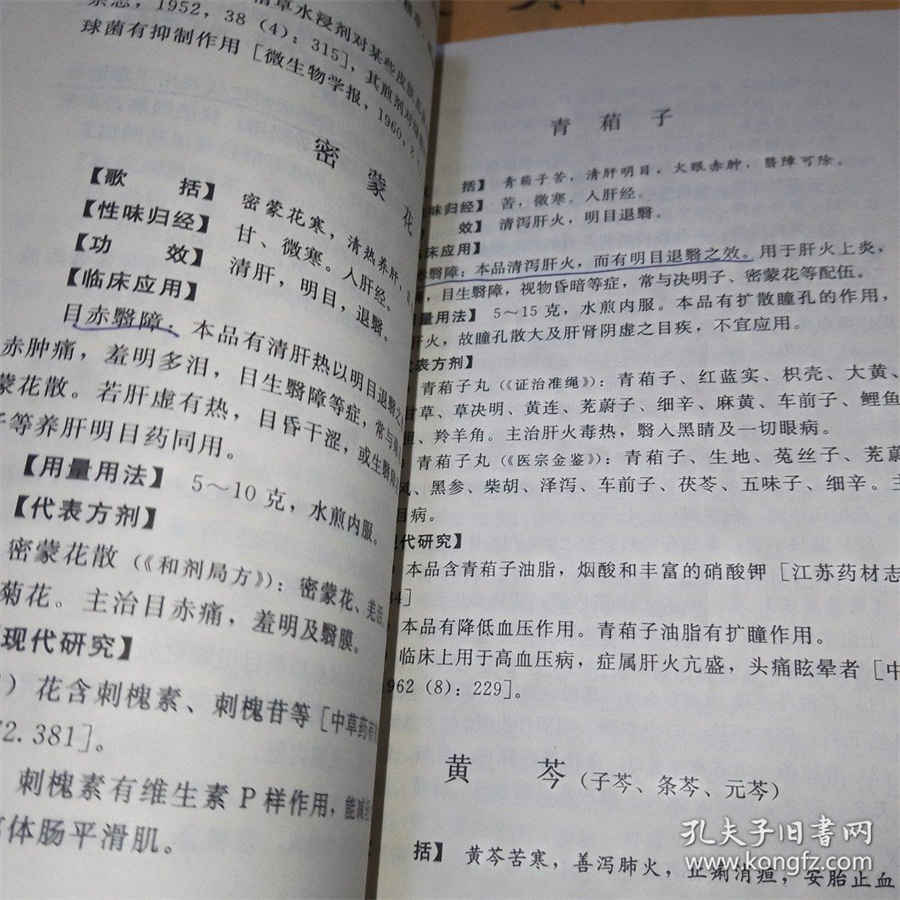 草水浸剂对某些皮肤
杂志，1952，38（4）：315]，其煎剂对
球菌有抑制作用［微生物学报，1960，
密 蒙 花
【歌 括】 密蒙花寒，清热养肝，
【性味归经】 甘、微寒。入肝经。
【功 效】 清肝，明目，退翳。
【临床应用】
目赤翳障：本品有清肝热以明目退翳之
赤肿痛，羞明多泪，目生翳障等症，常与
蒙花散。若肝虚有热，目昏干涩，或生翳障
子等养肝明目药同用。
【用量用法】 5～10 克，水煎内服。
【代表方剂】
密蒙花散（《和剂局方》）：密蒙花、羌活、
菊花。主治目赤痛，羞明及翳膜。
现代研究】
）花含刺槐素、刺槐苷等［中草药
2.381］。
刺槐素有维生素 P 样作用，能减
体肠平滑肌。
青 葙 子
括】 青葙子苦，清肝明目，火眼赤肿，翳障可除。
味归经】 苦，微寒。入肝经。
效】 清泻肝火，明目退翳。
床应用】
翳障：本品清泻肝火，而有明目退翳之效。用于肝火上炎，
，目生翳障，视物昏暗等症，常与决明子、密蒙花等配伍。
量用法】 5～15 克，水煎内服。本品有扩散瞳孔的作用，
火，故瞳孔散大及肝肾阴虚之目疾，不宜应用。
代表方剂】
青葙子丸（《证治准绳》）：青葙子、红蓝实、枳壳、大黄、
甘草、草决明、黄连、茺蔚子、细辛、麻黄、车前子、鲤鱼
、羚羊角。主治肝火毒热，翳入黑睛及一切眼病。
青葙子丸（《医宗金鉴》）：青葙子、生地、菟丝子、茺蔚
风、黑参、柴胡、泽泻、车前子、茯苓、五味子、细辛。主
目病。
现代研究】
本品含青葙子油脂，烟酸和丰富的硝酸钾［江苏药材志
］
本品有降低血压作用。青葙子油脂有扩瞳作用。
临床上用于高血压病，症属肝火亢盛，头痛眩晕者［中
1962（8）：229］。
黄 芩（子芩、条芩、元芩）
括】 黄芩苦寒，善泻肺火，止痢消疸，安胎止血
孔夫子旧书网
www.kongfz.com